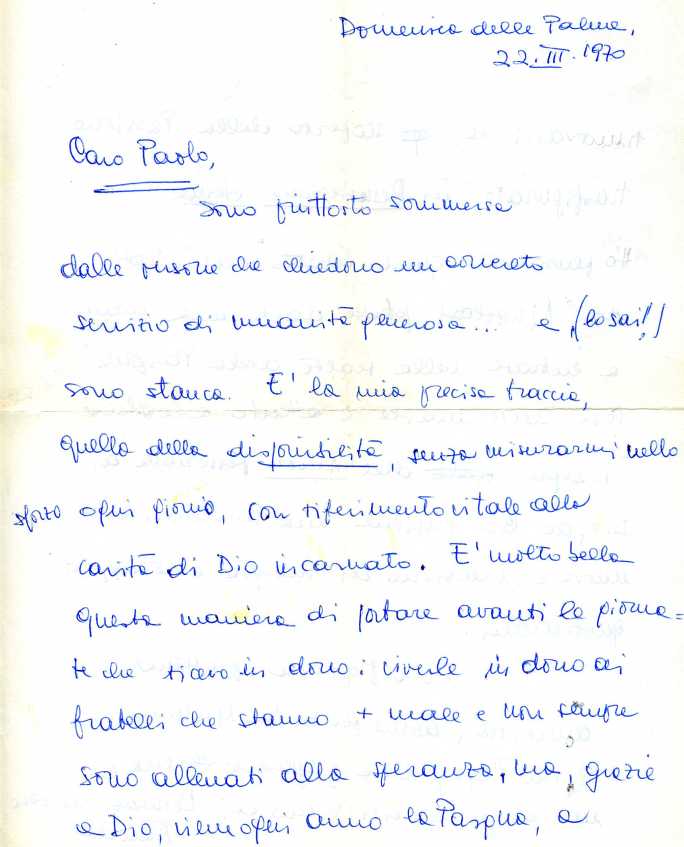 Domenica delle Palme,
22.III.1970
Caro Paolo,
sono piuttosto sommersa
dalle persone che chiedono un concreto
servizio di umanità generosa... e (lo sai!)
sono stanca. E' la mia precisa traccia,
quella della disponibilità, senza misurarmi nello
sforzo ogni giorno, con riferimento vitale alla
carità di Dio incarnato. E' molto bella
questa maniera di portare avanti le giorna=
te che ricevo in dono: viverle in dono ai
fratelli che stanno + male e non sempre
sono allenati alla speranza, ma, grazie
a Dio, viene ogni anno la Pasqua, a